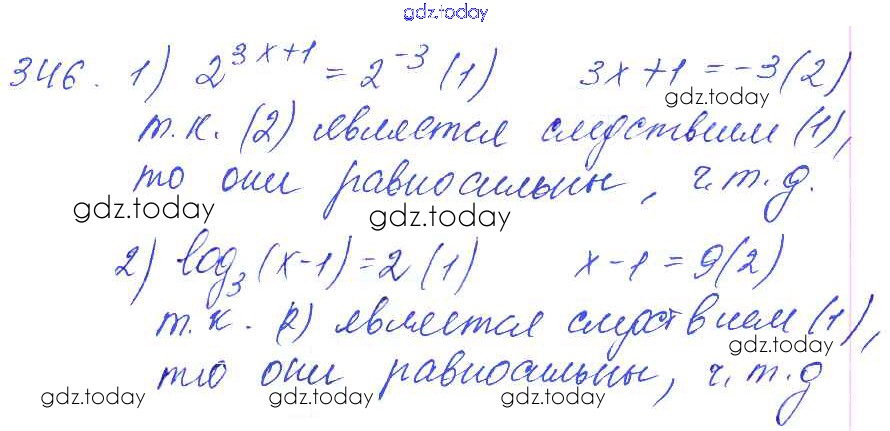 gdz.today
346. 1) 2^{3x+1} = 2^{-3} (1) 3x+1 = -3 (2)
gdz.today
т.к. (2) является следствием (1),
то они равносильны, ч.т.д.
gdz.today gdz.today
2) log_3 (x-1) = 2 (1) x-1 = 9 (2)
т.к. (2) является следствием (1),
gdz.today
то они равносильны, ч.т.д
gdz.today gdz.today gdz.today gdz.today